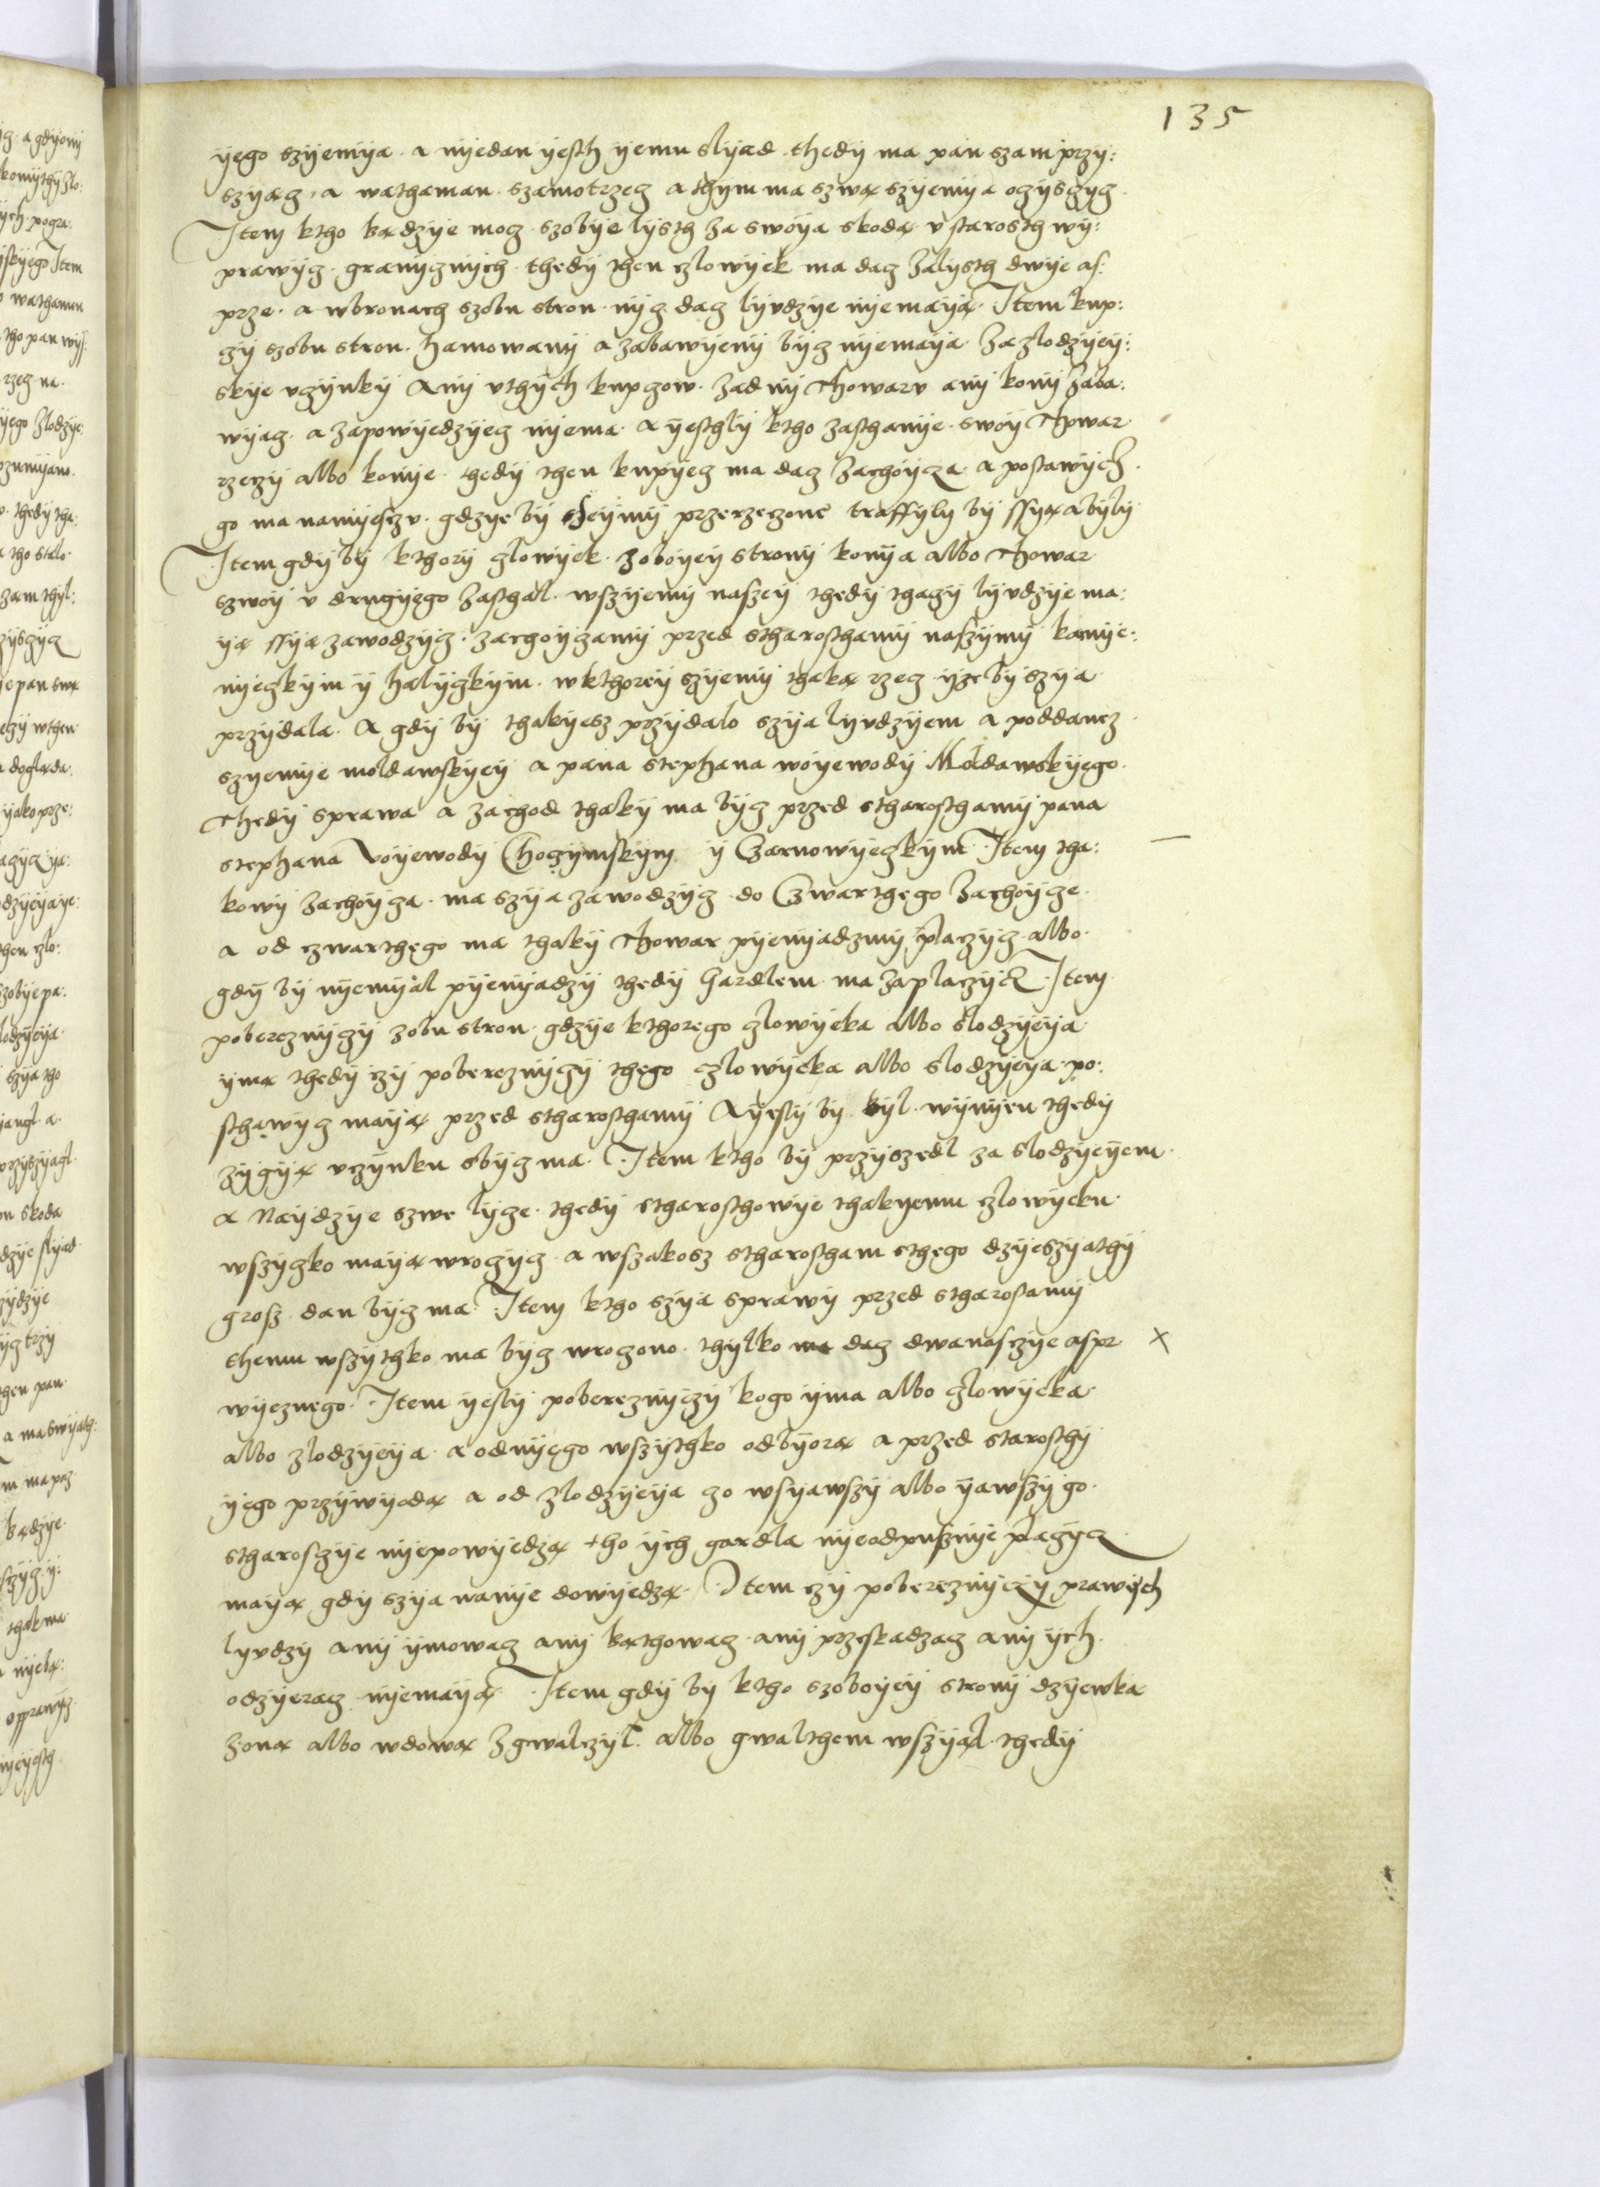 135
yego szyemya · a nyedan yesth yemu slyad · thedy ma pan szam przy:
szyącz · a wathaman · szamotrzecz a thym ma szwą szyemya oczysczycz ·
Item ktho bądzye mocz · szobye lysth za swoya skodą v starosth wy:
prawycz · granycznych · thedy then czlowyek ma dacz zalysth dwye as:
prze · a wbronach szobu stron · nycz dacz lyvdzye nyemayą · Item kup:
czy szobu stron · hamowany a zabawyeny bycz nyemaya za zlodzyey:
skye vczynky Any vthych kupczow · zadny thowarv any kony zaba:
wyacz · a zapowyedzyecz nyema · a yesthly ktho zasthanye · swoy thowar
rzeczy albo konye · thedy then kupyecz ma dacz zachoycza · a postawycz ·
go ma namyesczv · gdzye by szeymy przerzeczone traffyly by ssyą a byly
Item gdy by kthory czlowyek · zoboyey strony konya albo thowar
szwoy v drugyego zasthal · wszyemy naszey thedy thaczy lyvdzye ma:
yą ssyą zawodzycz · zachoyczamy przed stharosthamy naszymy kamye:
nyeczkym y halyczkym · wkthorey szyemy thaką rzecz yzeby szya
przydala · A gdy by thakyesz przydalo szya lyvdzyem a poddancz ·
szyemye moldawskyey a pana stephana woyewody Moldawskyego ·
thedy sprawa a zachod thaky ma bycz przed stharosthamy pana
stephana Voyewody Choczymskym y Czarnowyeczkym Item tha: —
kowy zachoycza · ma szya zawodzycz · do Czwarthego zachoycze ·
a od czwarthego ma thaky thowar pyenyadzmy placzycz albo ·
gdy by nyemyal pyenyadzy thedy gardlem ma zaplaczycz · Item
pobereznyczy zobu stron · gdzye kthorego czlowyeka albo slodzyeya
ymą thedy czy pobereznyczy thego czlowyeka albo slodzyeya · po:
sthawycz mayą przed stharosthamy Ayesly by byl · wynyen thedy
zygyą vczynku sbycz ma · Item ktho by przyszedl za slodzyeyem ·
a Naydzye szwe lycze · thedy stharosthowye thakyemu czlowyeku ·
wszyczko mayą wroczycz · a wszakosz stharostham sthego dzyeszyathy
grosz · dan bycz ma Item ktho szya sprawy przed stharostamy
themu wszythko ma bycz wroczono · thylko ma dacz dwanasczye aspr x
wyecznego · Item yesly pobereznyczy kogo yma albo czlowyeka ·
albo zlodzyeya · a odnyego wszythko odbyorą a przed starosthy
yego przywyodą a od zlodzyeya czo wsyawszy albo yawszy go ·
stharosczye nyepowyedzą tho ych gardla nyeodpusznye placzycz
mayą gdy szya nanye dowyedzą · Item czy pobereznyczy prawych
lyvdzy any ymowacz any bąthowacz · any przeskadzacz any ych ·
odzyeracz nyemayą · Item gdy by ktho szoboyey strony dzyewka
zoną albo wdową zgwalczyl · albo gwalthem wszyął · thedy